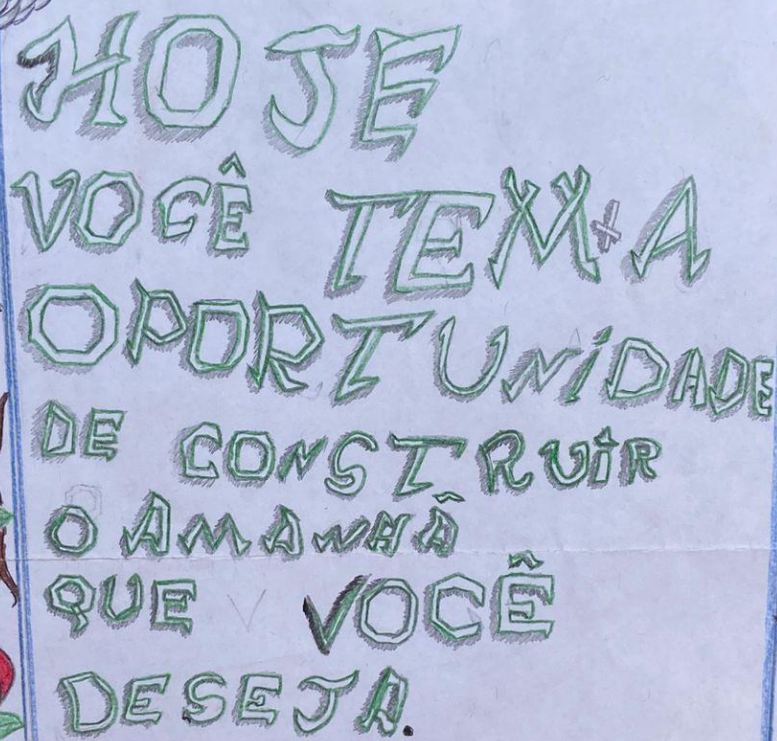 HOJE
VOCÊ TEM A
OPORTUNIDADE
DE CONSTRUIR
O AMANHÃ
QUE VOCÊ
DESEJA.